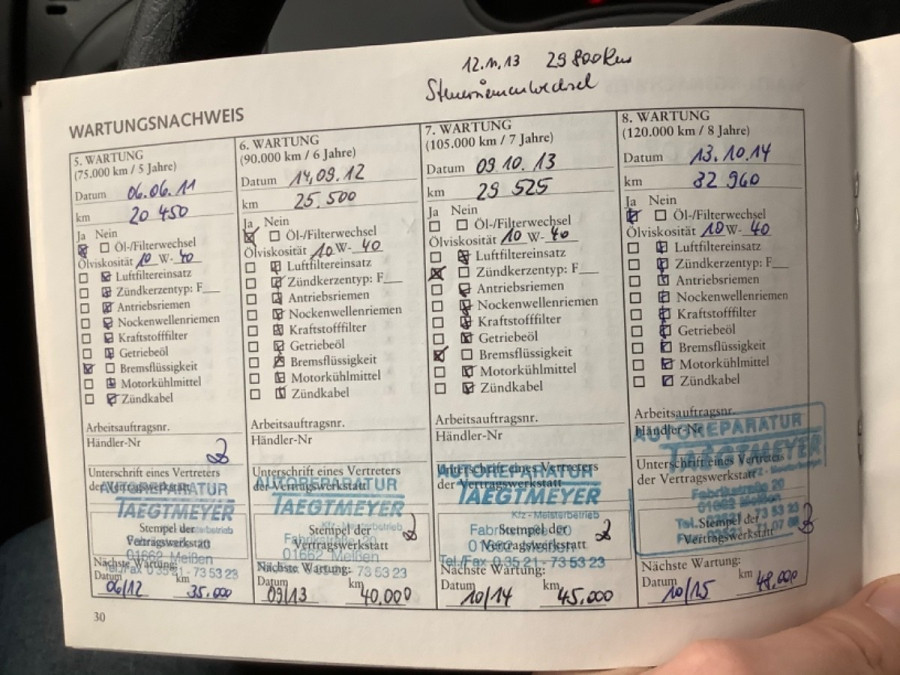 12.11.13 29800km
Steuerriemenwechsel
WARTUNGSNACHWEIS
5. WARTUNG
(75.000 km / 5 Jahre)
Datum 06.06.11
km 20 450
Ja Nein
Öl-/Filterwechsel
Ölviskosität 10 W- 40
Luftfiltereinsatz
Zündkerzentyp: F
Antriebsriemen
Nockenwellenriemen
Kraftstofffilter
Getriebeöl
Bremsflüssigkeit
Motorkühlmittel
Zündkabel
Arbeitsauftragsnr.
Händler-Nr
Unterschrift eines Vertreters
der Vertragswerkstatt
AUTOREPARATUR
TAEGTMEYER
Kfz - Meisterbetrieb
Stempel der
Vertragswerkstatt
01662 Meißen
Tel./Fax 0 35 21 - 73 53 23
Nächste Wartung:
Datum km
06/12 35.000
6. WARTUNG
(90.000 km / 6 Jahre)
Datum 14.09.12
km 25.500
Ja Nein
Öl-/Filterwechsel
Ölviskosität 10 W- 40
Luftfiltereinsatz
Zündkerzentyp: F
Antriebsriemen
Nockenwellenriemen
Kraftstofffilter
Getriebeöl
Bremsflüssigkeit
Motorkühlmittel
Zündkabel
Arbeitsauftragsnr.
Händler-Nr
Unterschrift eines Vertreters
der Vertragswerkstatt
AUTOREPARATUR
TAEGTMEYER
Kfz - Meisterbetrieb
Stempel der
Fabrikstraße 20
Vertragswerkstatt
01662 Meißen
Tel./Fax 0 35 21 - 73 53 23
Nächste Wartung:
Datum km
09/13 40.000
7. WARTUNG
(105.000 km / 7 Jahre)
Datum 09.10.13
km 29 525
Ja Nein
Öl-/Filterwechsel
Ölviskosität 10 W- 40
Luftfiltereinsatz
Zündkerzentyp: F
Antriebsriemen
Nockenwellenriemen
Kraftstofffilter
Getriebeöl
Bremsflüssigkeit
Motorkühlmittel
Zündkabel
Arbeitsauftragsnr.
Händler-Nr
Unterschrift eines Vertreters
der Vertragswerkstatt
AUTOREPARATUR
TAEGTMEYER
Kfz - Meisterbetrieb
Stempel der
Vertragswerkstatt
Tel./Fax 0 35 21 - 73 53 23
Nächste Wartung:
Datum km
10/14 45.000
8. WARTUNG
(120.000 km / 8 Jahre)
Datum 13.10.14
km 32 960
Ja Nein
Öl-/Filterwechsel
Ölviskosität 10 W- 40
Luftfiltereinsatz
Zündkerzentyp: F
Antriebsriemen
Nockenwellenriemen
Kraftstofffilter
Getriebeöl
Bremsflüssigkeit
Motorkühlmittel
Zündkabel
Arbeitsauftragsnr.
Händler-Nr
AUTOREPARATUR
TAEGTMEYER
Unterschrift eines Vertreters
der Vertragswerkstatt
Kfz - Meisterbetrieb
Fabrikstraße 20
01662 Meißen
Stempel der
Vertragswerkstatt
Nächste Wartung:
Datum km
10/15 48.000
30